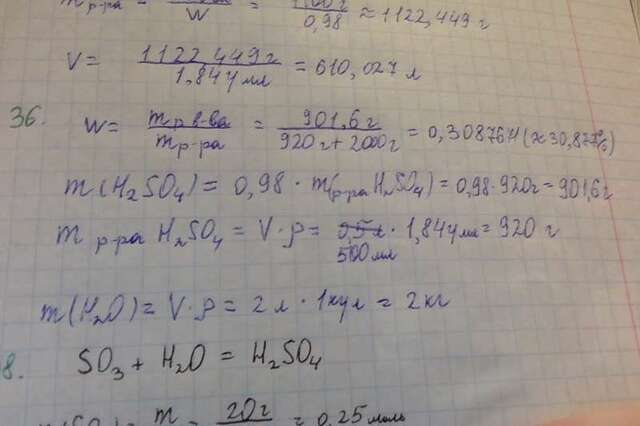 m р-ра = = = 1100 г / 0,98 ≈ 1122,449 г
W
V = 1122,449 г / 1,84 г/мл = 610,027 л
36. W = m р.в-ва / m р-ра = 901,6 г / 920 г + 2000 г = 0,308764 (≈ 30,877%)
m(H₂SO₄) = 0,98 · m(р-ра H₂SO₄) = 0,98·920г = 901,6 г
m р-ра H₂SO₄ = V·ρ = 500 мл · 1,84 г/мл = 920 г
m(H₂O) = V·ρ = 2 л · 1 кг/л = 2 кг
8. SO₃ + H₂O = H₂SO₄
m = 20 г = 0,25 моль